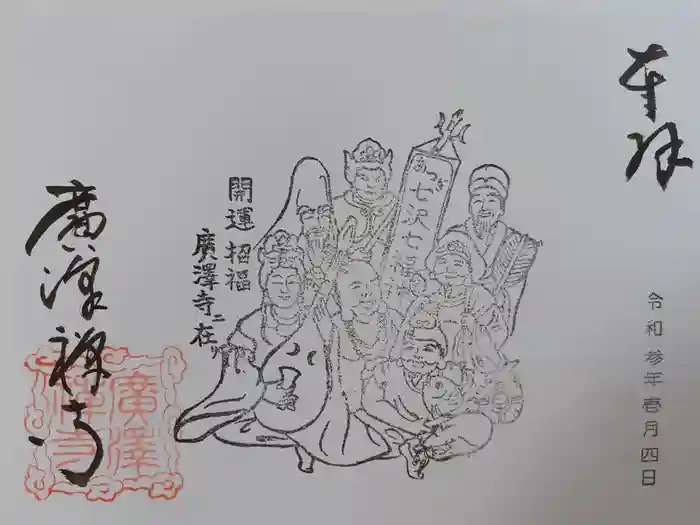 奉拝
令和参年壱月四日
あつぎ七沢七福
開運招福
廣澤寺ニ在リ
廣澤禅寺
廣澤
禅寺